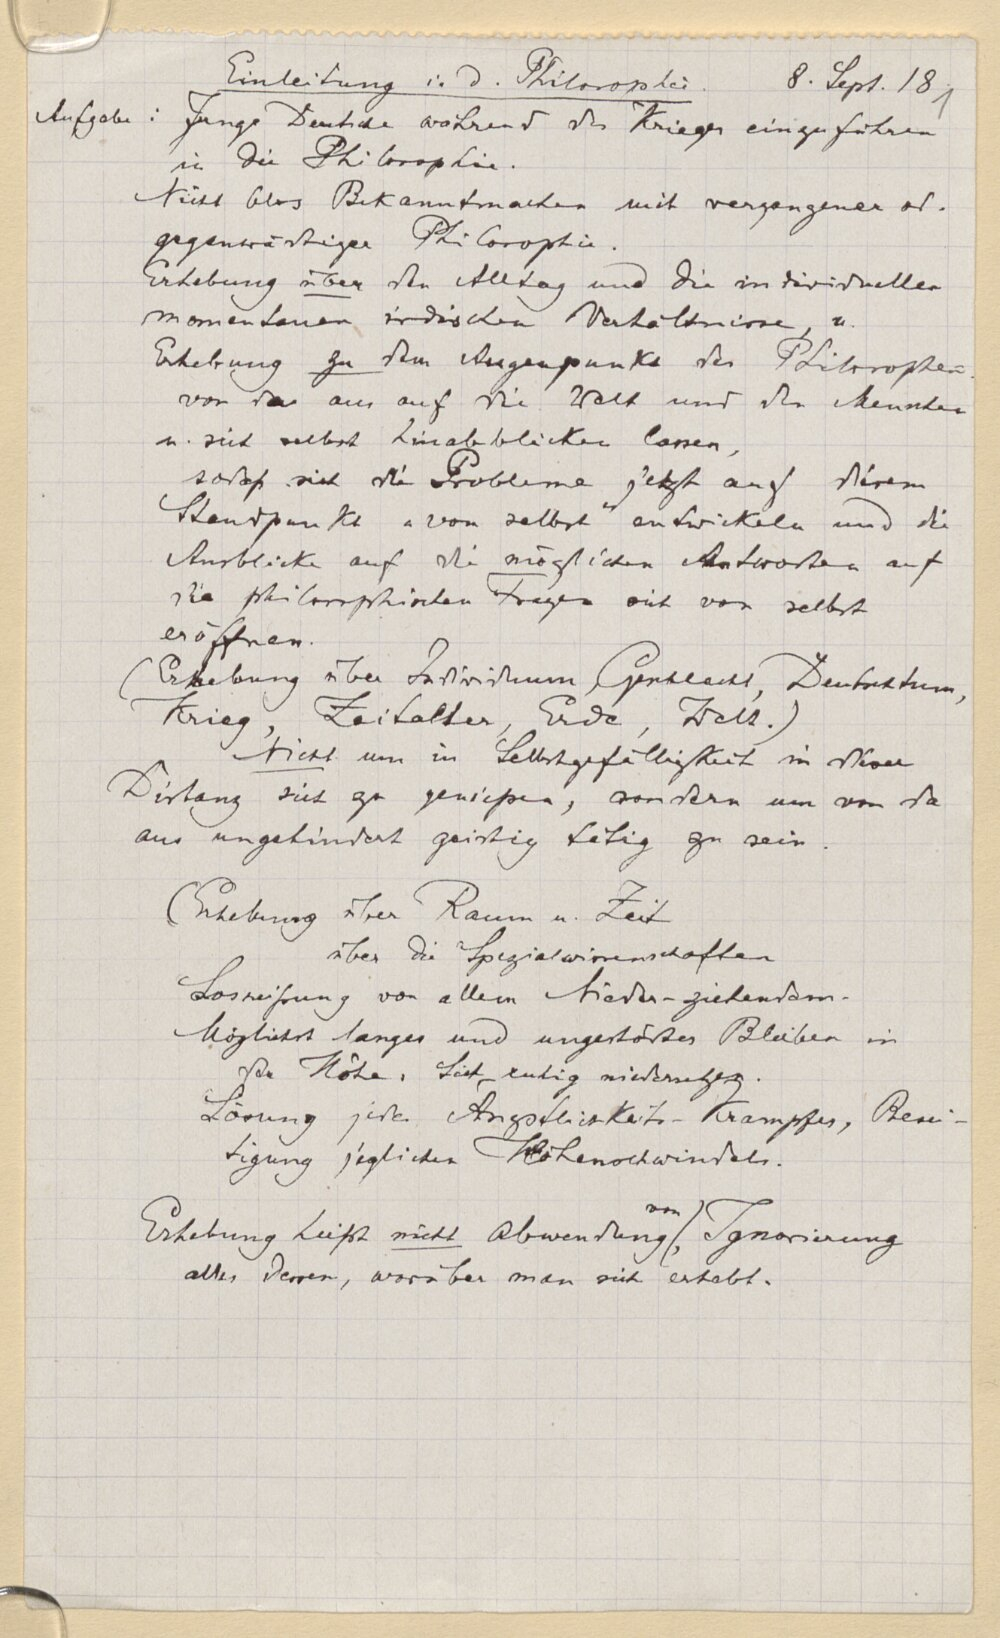 Einleitung i. d. Philosophie. 8. Sept. 18
1
Aufgabe: Junge Deutsche während des Krieges einzuführen
in die Philosophie.
Nicht blos Bekanntmachen mit vergangener od.
gegenwärtiger Philosophie.
Erhebung über den Alltag und die individuellen
momentanen irdischen Verhältnisse, u.
Erhebung zu dem Augenpunkt des Philosophen.
von da aus auf die Welt und den Menschen
u. sich selbst hinabblicken lassen,
sodaß sich die Probleme jetzt auf diesem
Standpunkt "von selbst" entwickeln und die
Ausblicke auf die möglichen Antworten auf
die philosophischen Fragen sich von selbst
eröffnen.
(Erhebung über Individuum, Geschlecht, Deutschtum,
Krieg, Zeitalter, Erde, Welt.)
Nicht um in Selbstgefälligkeit in dieser
Distanz sich zu genießen, sondern um von da
aus ungehindert geistig tätig zu sein.
(Erhebung über Raum u. Zeit
über die Spezialwissenschaften
Losreißung von allem Nieder-ziehendem.
Möglichst langes und ungestörtes Bleiben in
der Höhe. Sich ruhig niedersetzen.
Lösung jedes Ängstlichkeits-Krampfes, Besei-
tigung jeglichen Höhenschwindels.
Erhebung heißt nicht Abwendung von, Ignorierung
alles dessen, worüber man sich erhebt.